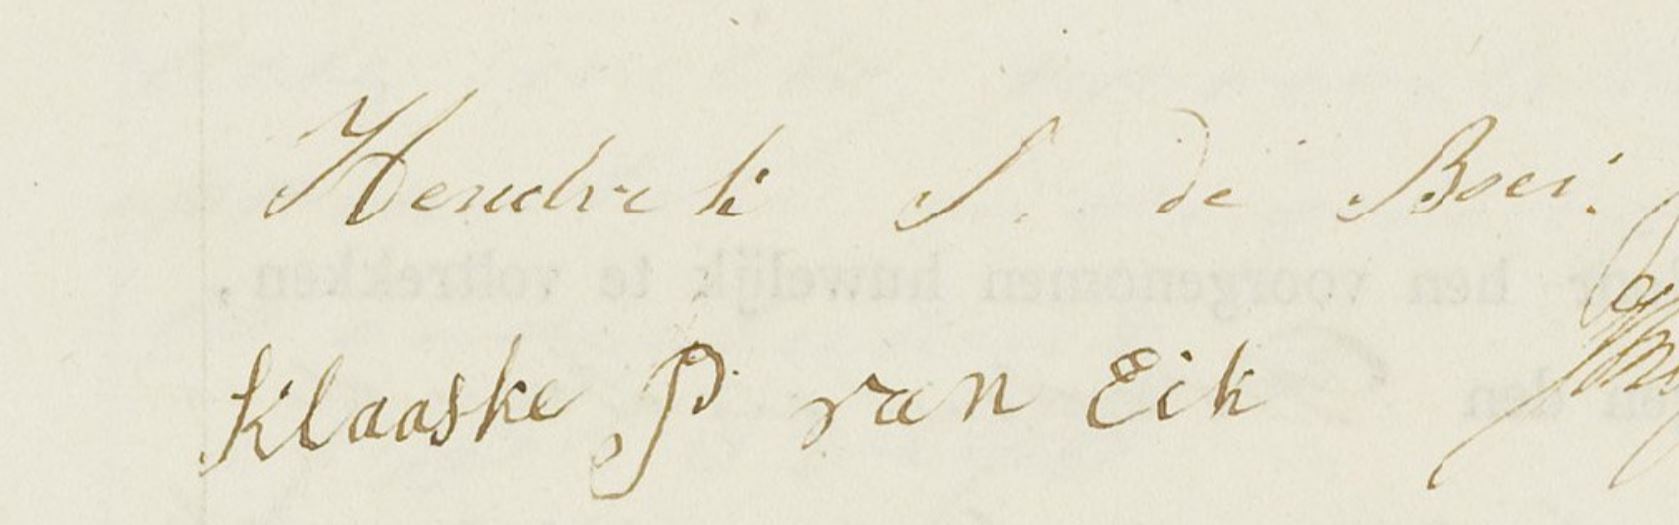 Hendrik S. de Boer.
Klaaske P van Eik